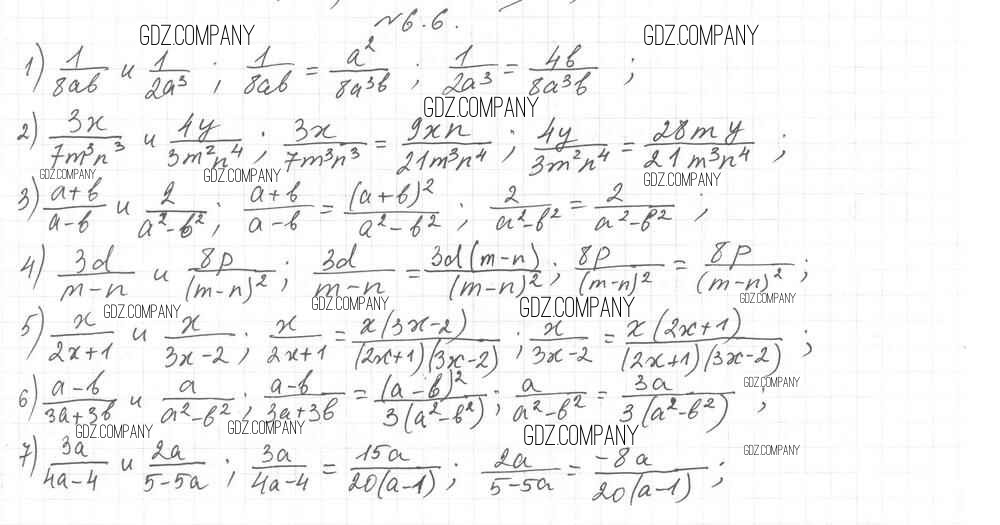 №6.6.
GDZ.COMPANY GDZ.COMPANY
1) 1/8ab и 1/2a³ ; 1/8ab = a²/8a³b ; 1/2a³ = 4b/8a³b ;
GDZ.COMPANY
2) 3x/7m³n³ и 4y/3m²n⁴ ; 3x/7m³n³ = 9xn/21m³n⁴ ; 4y/3m²n⁴ = 28my/21m³n⁴ ;
GDZ.COMPANY GDZ.COMPANY GDZ.COMPANY
3) a+b/a-b и 2/a²-b² ; a+b/a-b = (a+b)²/a²-b² ; 2/a²-b² = 2/a²-b² ;
4) 3d/m-n и 8p/(m-n)² ; 3d/m-n = 3d(m-n)/(m-n)² ; 8p/(m-n)² = 8p/(m-n)² ;
GDZ.COMPANY GDZ.COMPANY GDZ.COMPANY GDZ.COMPANY
5) x/2x+1 и x/3x-2 ; x/2x+1 = x(3x-2)/(2x+1)(3x-2) ; x/3x-2 = x(2x+1)/(2x+1)(3x-2) ;
GDZ.COMPANY
6) a-b/3a+3b и a/a²-b² ; a-b/3a+3b = (a-b)²/3(a²-b²) ; a/a²-b² = 3a/3(a²-b²) ;
GDZ.COMPANY GDZ.COMPANY GDZ.COMPANY GDZ.COMPANY
7) 3a/4a-4 и 2a/5-5a ; 3a/4a-4 = 15a/20(a-1) ; 2a/5-5a = -8a/20(a-1) ;